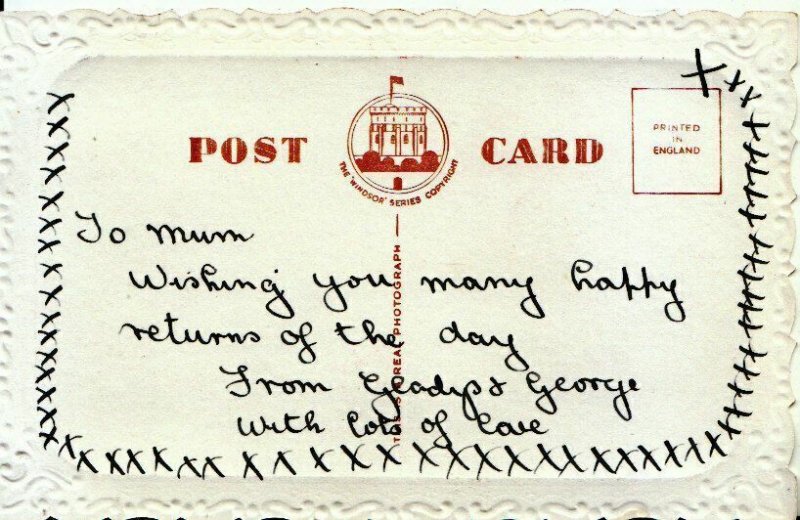 POST CARD
THE 'WINDSOR' SERIES COPYRIGHT
PRINTED
IN
ENGLAND
THIS IS A REAL PHOTOGRAPH
To Mum
Wishing you many happy
returns of the day
From Gladys & George
With lots of love